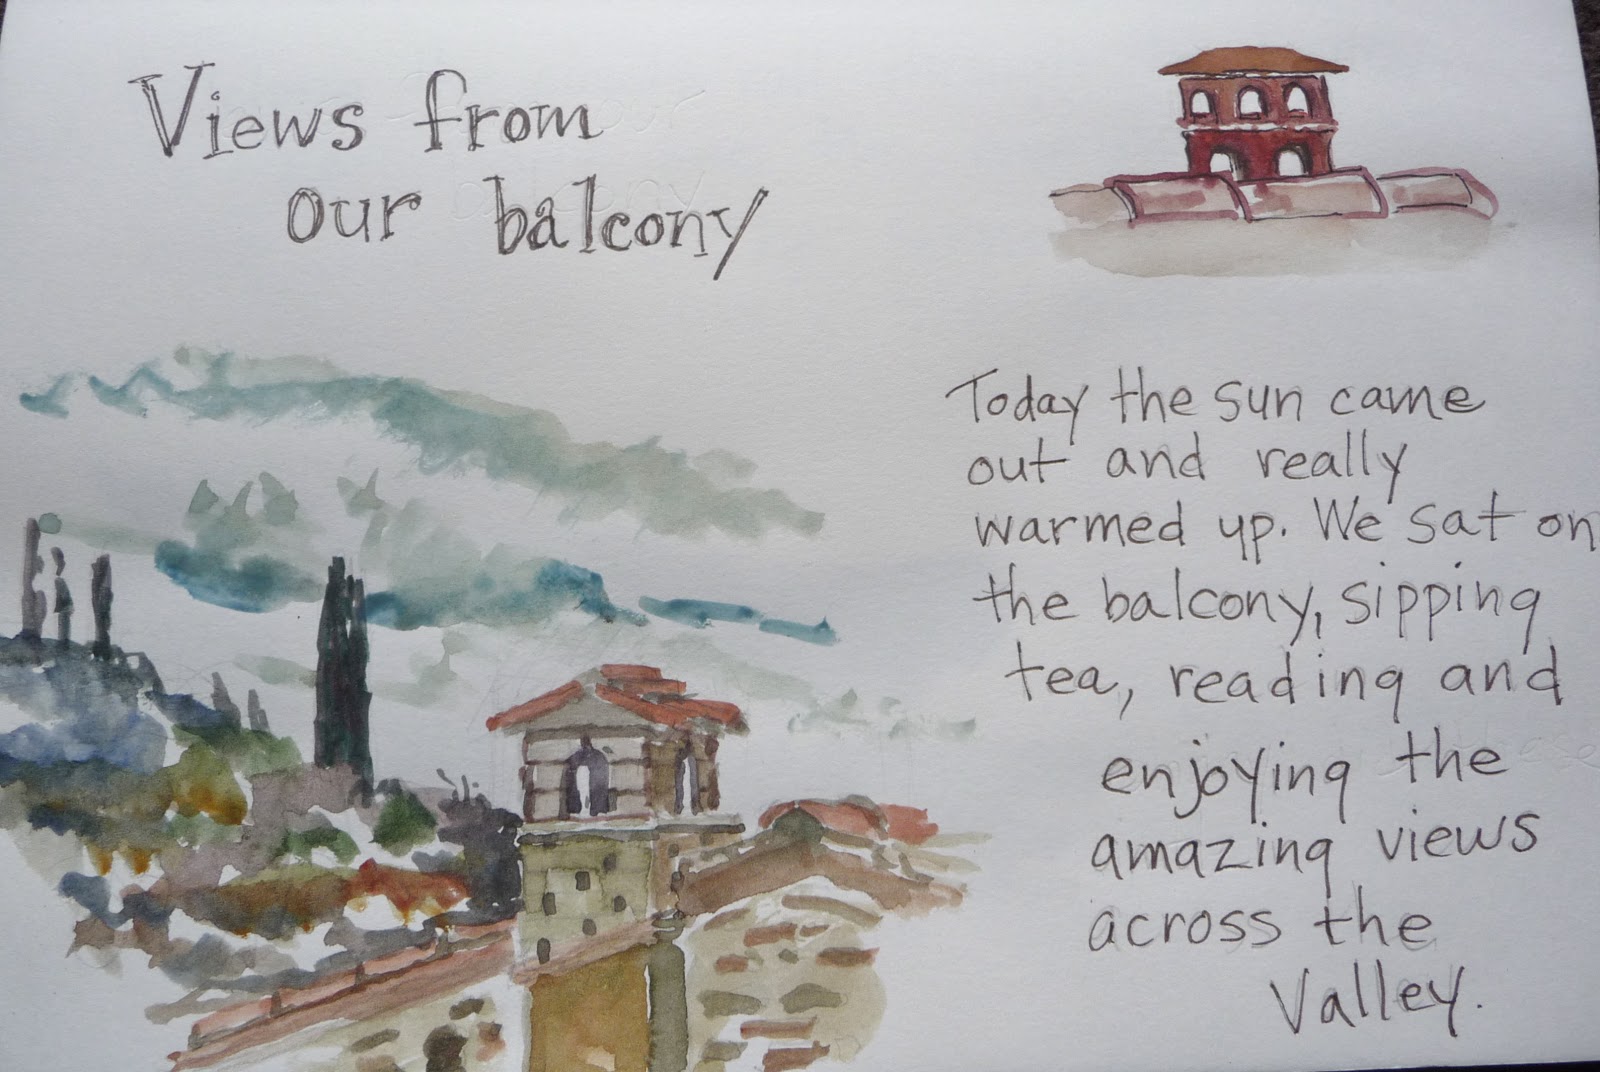 Views from
our balcony
Today the sun came
out and really
warmed up. We sat on
the balcony, sipping
tea, reading and
enjoying the
amazing views
across the
Valley.